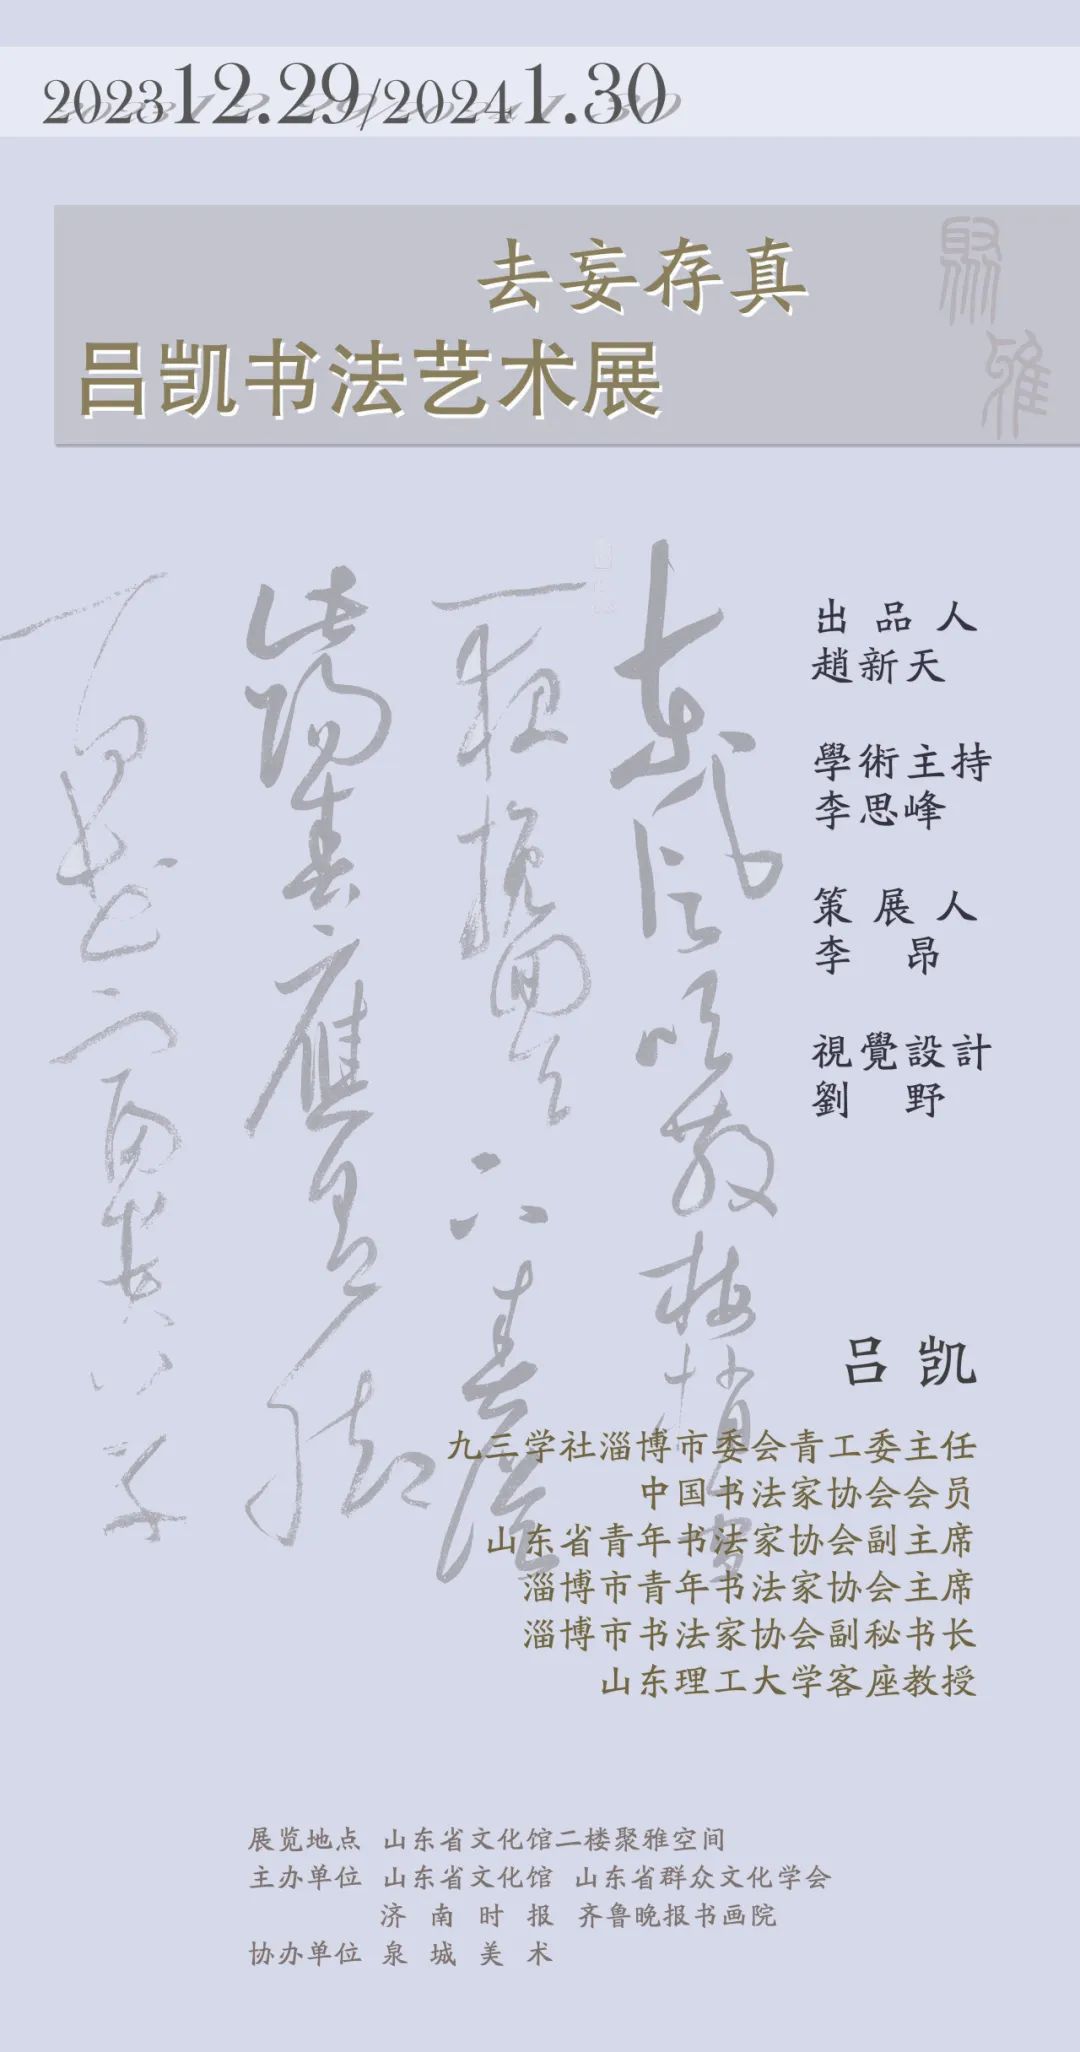 2023 12.29/2024 1.30
去妄存真
吕凯书法艺术展
聚雅
出品人
趙新天
學術主持
李思峰
策展人
李昂
視覺設計
劉野
吕凯
九三学社淄博市委会青工委主任
中国书法家协会会员
山东省青年书法家协会副主席
淄博市青年书法家协会主席
淄博市书法家协会副秘书长
山东理工大学客座教授
展览地点 山东省文化馆二楼聚雅空间
主办单位 山东省文化馆 山东省群众文化学会
济南时报 齐鲁晚报书画院
协办单位 泉城美术